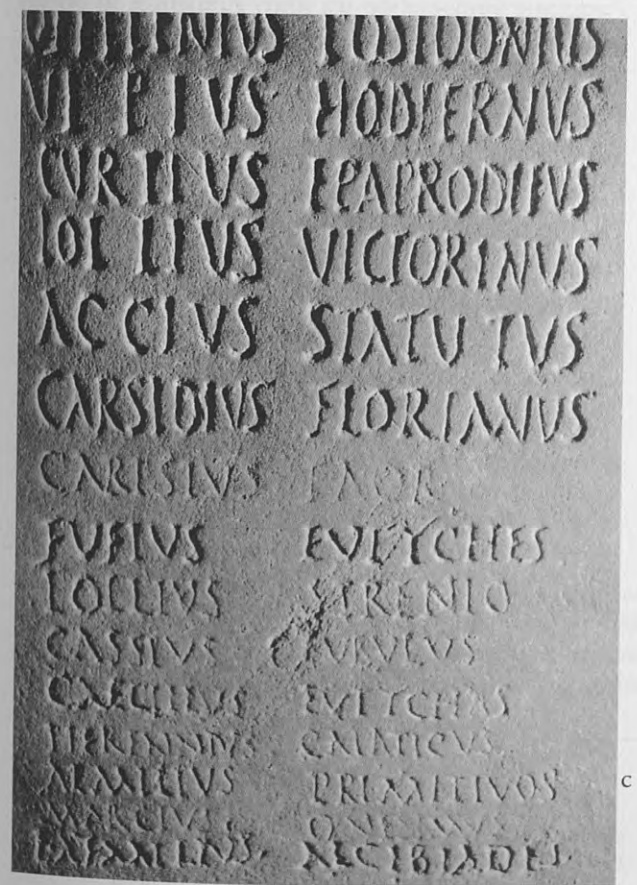 POSIDONIUS
VLPIVS HODIERNVS
CVRTINVS EPAPRODITVS
LOLLIVS VICTORINVS
ACCIVS STATUTVS
CARSIDIVS FLORIANVS
CARISIVS
FUFIVS EVTYCHES
LOLLIVS SERENIO
CASSIVS
CAECILIVS EVTYCHAS
HERENNIVS
PRIMITIVOS
MARCIVS
ALCIBIADES
C